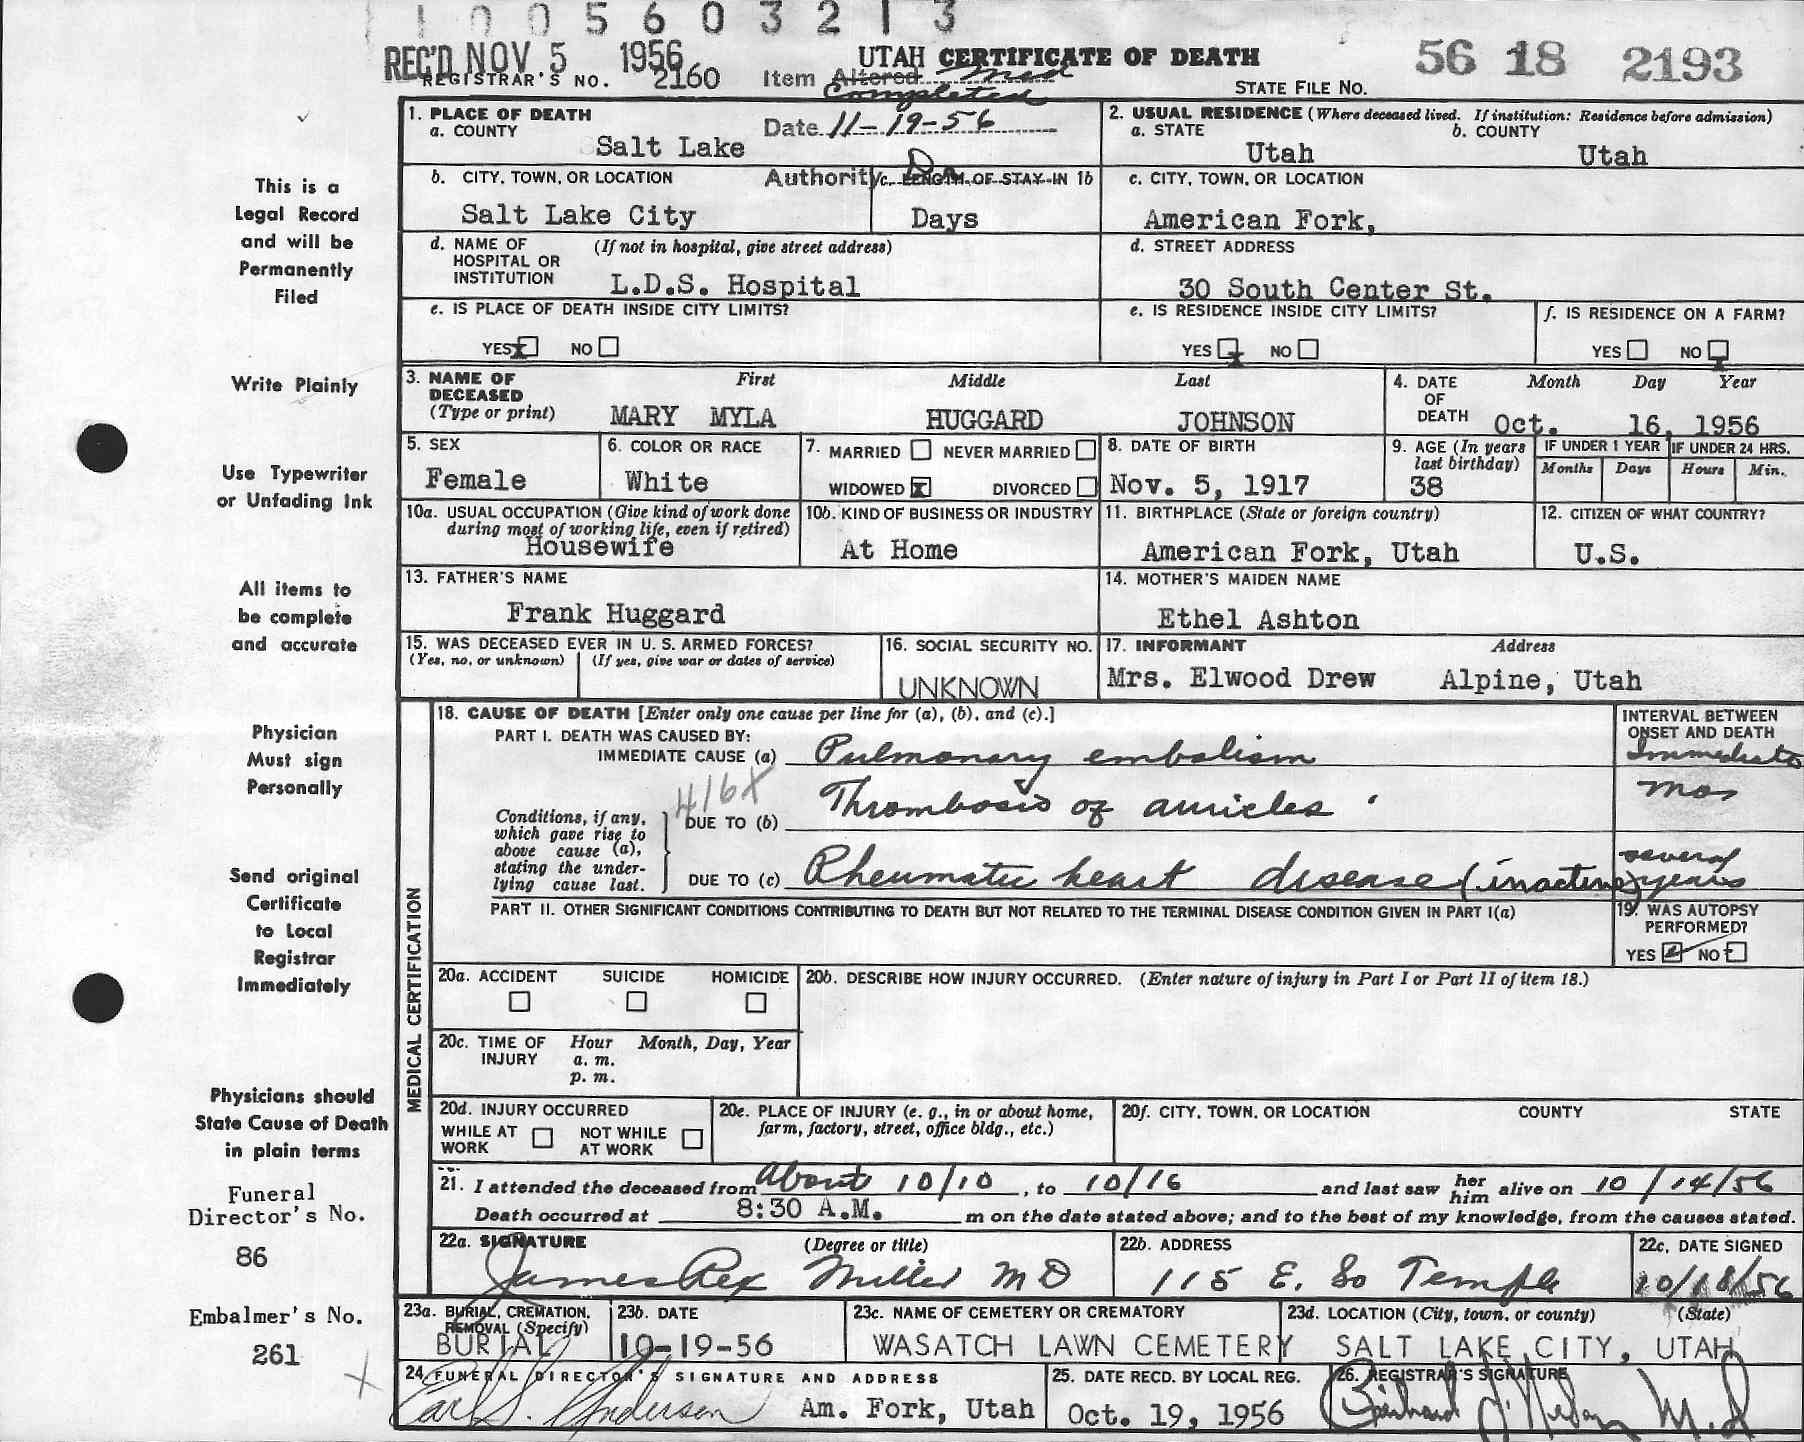 1 0 0 5 6 0 3 2 1 3
REC'D NOV 5 1956
UTAH CERTIFICATE OF DEATH
56 18 2193
REGISTRAR'S NO. 2160
Item Altered Med
Completed
STATE FILE NO.
1. PLACE OF DEATH
a. COUNTY
Salt Lake
Date 11-19-56
2. USUAL RESIDENCE (Where deceased lived. If institution: Residence before admission)
a. STATE
Utah
b. COUNTY
Utah
b. CITY, TOWN, OR LOCATION
Salt Lake City
Authority Dr.
c. LENGTH OF STAY IN 1b
Days
c. CITY, TOWN, OR LOCATION
American Fork,
d. NAME OF HOSPITAL OR INSTITUTION
(If not in hospital, give street address)
L.D.S. Hospital
d. STREET ADDRESS
30 South Center St.
e. IS PLACE OF DEATH INSIDE CITY LIMITS?
YES X NO
e. IS RESIDENCE INSIDE CITY LIMITS?
YES X NO
f. IS RESIDENCE ON A FARM?
YES NO X
3. NAME OF DECEASED
(Type or print)
First Middle Last
MARY MYLA HUGGARD JOHNSON
4. DATE OF DEATH
Month Day Year
Oct. 16, 1956
5. SEX
Female
6. COLOR OR RACE
White
7. MARRIED NEVER MARRIED
WIDOWED X DIVORCED
8. DATE OF BIRTH
Nov. 5, 1917
9. AGE (In years last birthday)
38
IF UNDER 1 YEAR
Months Days
IF UNDER 24 HRS.
Hours Min.
10a. USUAL OCCUPATION (Give kind of work done during most of working life, even if retired)
Housewife
10b. KIND OF BUSINESS OR INDUSTRY
At Home
11. BIRTHPLACE (State or foreign country)
American Fork, Utah
12. CITIZEN OF WHAT COUNTRY?
U.S.
13. FATHER'S NAME
Frank Huggard
14. MOTHER'S MAIDEN NAME
Ethel Ashton
15. WAS DECEASED EVER IN U. S. ARMED FORCES?
(Yes, no, or unknown) (If yes, give war or dates of service)
16. SOCIAL SECURITY NO.
UNKNOWN
17. INFORMANT Address
Mrs. Elwood Drew Alpine, Utah
MEDICAL CERTIFICATION
18. CAUSE OF DEATH [Enter only one cause per line for (a), (b), and (c).]
PART I. DEATH WAS CAUSED BY:
IMMEDIATE CAUSE (a) Pulmonary embolism
INTERVAL BETWEEN ONSET AND DEATH
Immediate
416X
Conditions, if any, which gave rise to above cause (a), stating the underlying cause last.
DUE TO (b) Thrombosis of auricles
mos
DUE TO (c) Rheumatic heart disease (inactive)
several years
PART II. OTHER SIGNIFICANT CONDITIONS CONTRIBUTING TO DEATH BUT NOT RELATED TO THE TERMINAL DISEASE CONDITION GIVEN IN PART I(a)
19. WAS AUTOPSY PERFORMED?
YES NO
20a. ACCIDENT SUICIDE HOMICIDE
20b. DESCRIBE HOW INJURY OCCURRED. (Enter nature of injury in Part I or Part II of item 18.)
20c. TIME OF INJURY
Hour Month, Day, Year
a. m.
p. m.
20d. INJURY OCCURRED
WHILE AT WORK NOT WHILE AT WORK
20e. PLACE OF INJURY (e. g., in or about home, farm, factory, street, office bldg., etc.)
20f. CITY, TOWN, OR LOCATION COUNTY STATE
21. I attended the deceased from About 10/10, to 10/16 and last saw her him alive on 10/14/56
Death occurred at 8:30 A.M. m on the date stated above; and to the best of my knowledge, from the causes stated.
22a. SIGNATURE (Degree or title)
James Rex Miller MD
22b. ADDRESS
115 E. So Temple
22c. DATE SIGNED
10/18/56
23a. BURIAL, CREMATION, REMOVAL (Specify)
BURIAL
23b. DATE
10-19-56
23c. NAME OF CEMETERY OR CREMATORY
WASATCH LAWN CEMETERY
23d. LOCATION (City, town, or county) (State)
SALT LAKE CITY, UTAH
24. FUNERAL DIRECTOR'S SIGNATURE AND ADDRESS
Earl S. Anderson Am. Fork, Utah
25. DATE RECD. BY LOCAL REG.
Oct. 19, 1956
26. REGISTRAR'S SIGNATURE
M.D
This is a
Legal Record
and will be
Permanently
Filed
Write Plainly
Use Typewriter
or Unfading Ink
All items to
be complete
and accurate
Physician
Must sign
Personally
Send original
Certificate
to Local
Registrar
Immediately
Physicians should
State Cause of Death
in plain terms
Funeral
Director's No.
86
Embalmer's No.
261